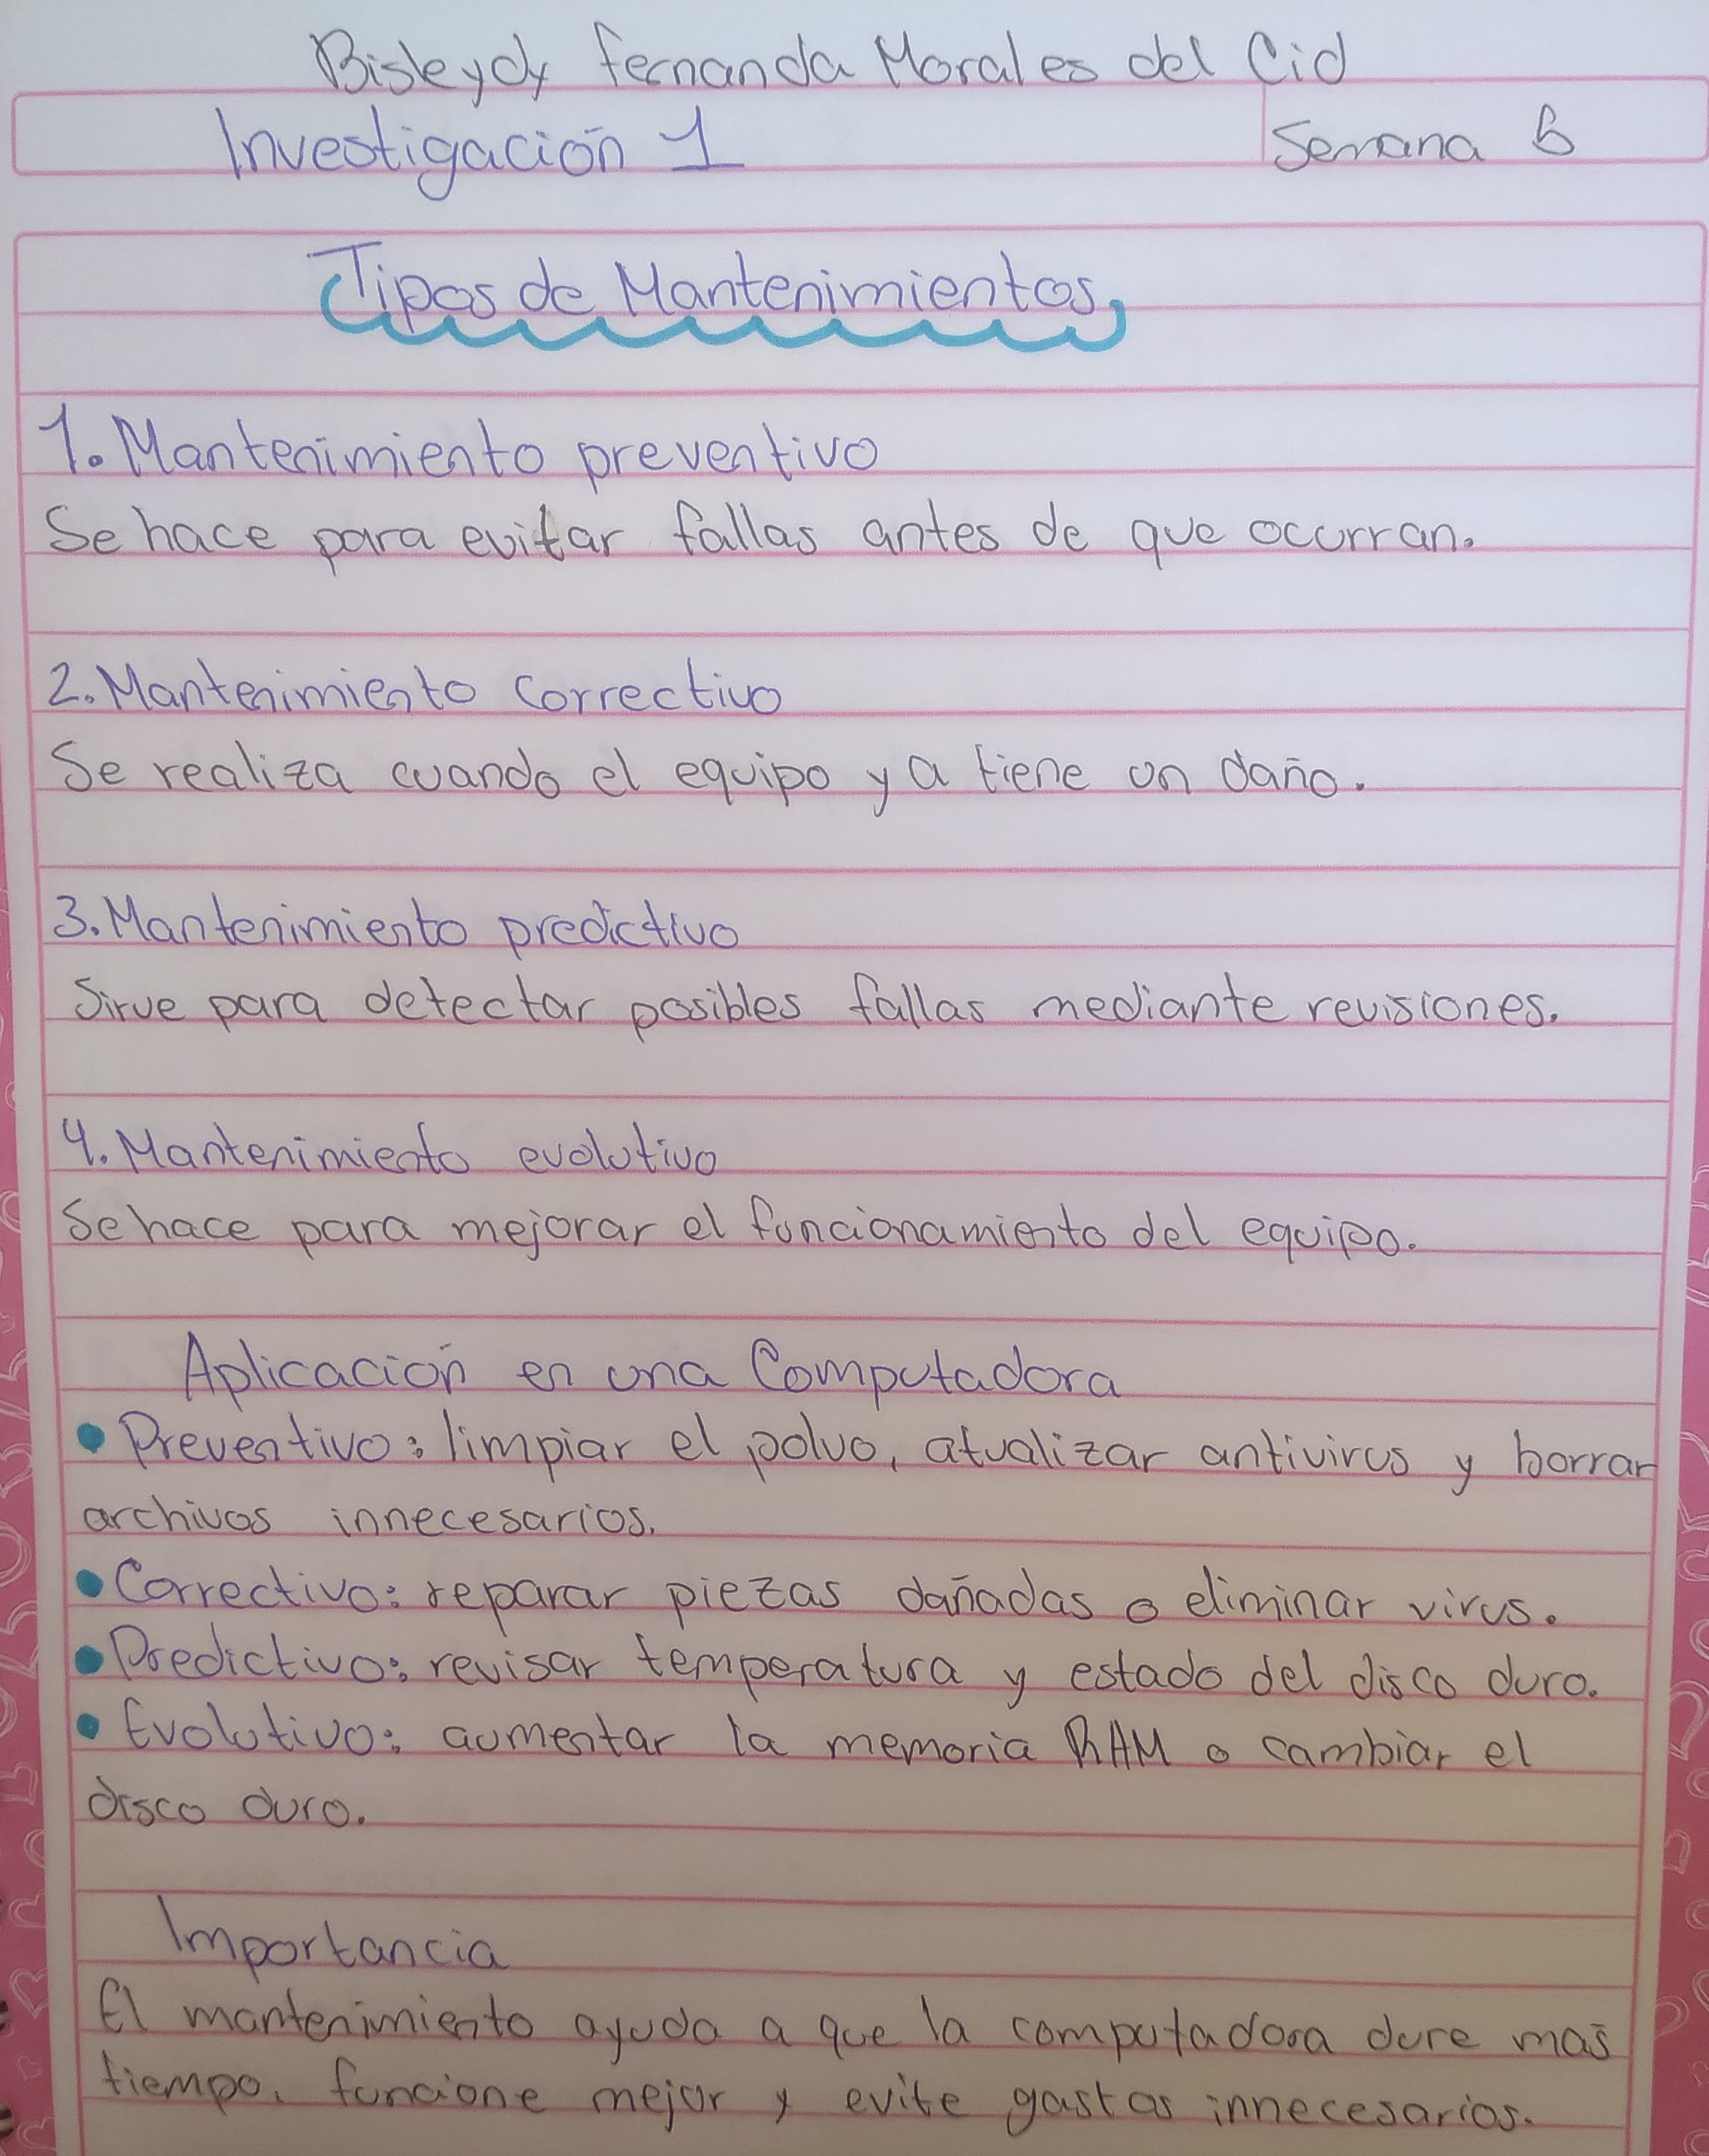 Bisleydy Fernanda Morales del Cid
Investigación 1 Semana B
Tipos de Mantenimientos
1. Mantenimiento preventivo
Se hace para evitar fallas antes de que ocurran.
2. Mantenimiento correctivo
Se realiza cuando el equipo ya tiene un daño.
3. Mantenimiento predictivo
Sirve para detectar posibles fallas mediante revisiones.
4. Mantenimiento evolutivo
Se hace para mejorar el funcionamiento del equipo.
Aplicación en una Computadora
• Preventivo: limpiar el polvo, atualizar antivirus y borrar
archivos innecesarios.
• Correctivo: reparar piezas dañadas o eliminar virus.
• Predictivo: revisar temperatura y estado del disco duro.
• Evolutivo: aumentar la memoria RAM o cambiar el
disco duro.
Importancia
El mantenimiento ayuda a que la computadora dure más
tiempo, funcione mejor y evite gastos innecesarios.